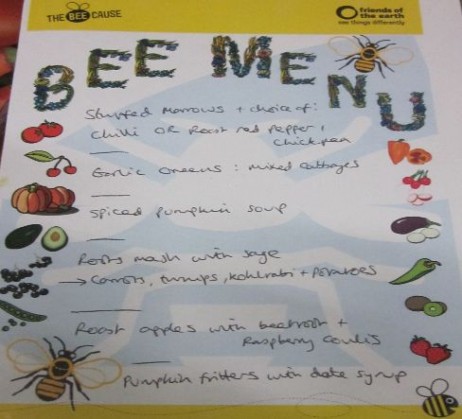 THE BEE CAUSE
friends of the earth
see things differently
BEE MENU
Stuffed Marrows + choice of:
Chilli OR Roast red pepper + chickpea
Garlic Greens : mixed cabbages
Spiced Pumpkin soup
Roots mash with sage
→ Carrots, turnips, kohlrabi + Potatoes
Roast apples with beetroot +
Raspberry Coulis
Pumpkin fritters with date syrup